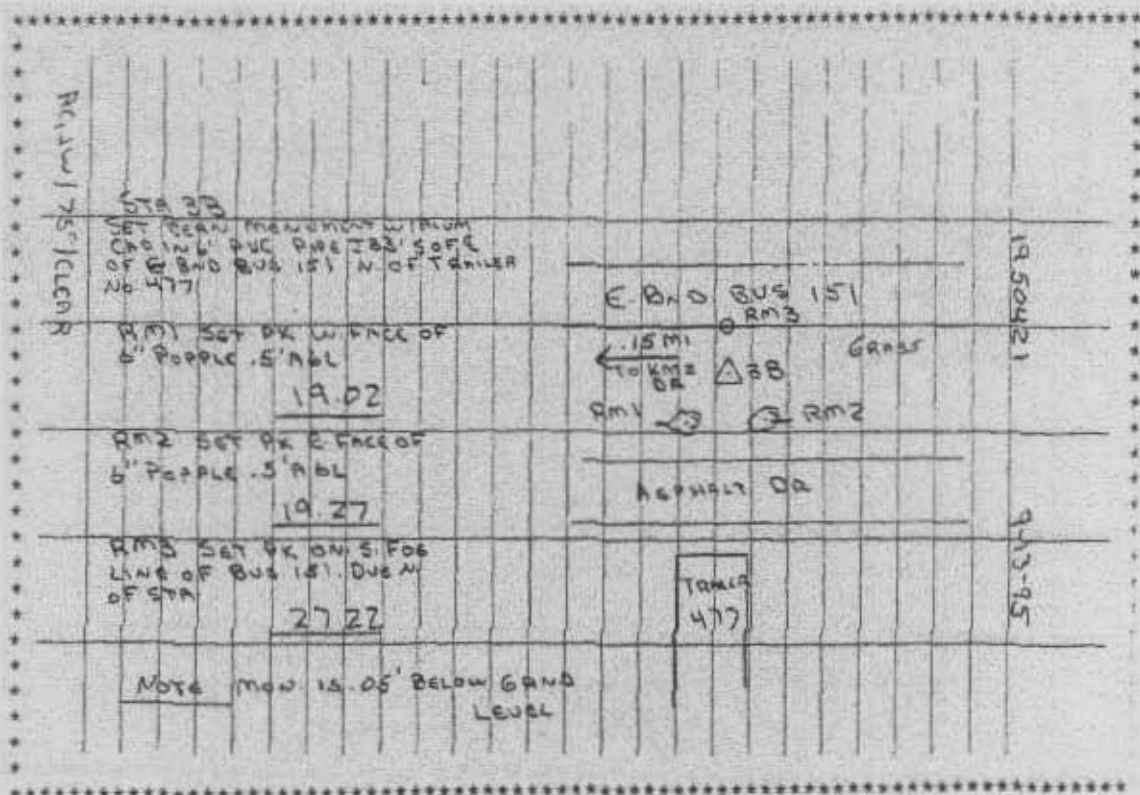 STA 38
SET BERN MONUMENT W/ALUM
CAP IN 6" PVC PIPE ±33' S OF
OF E BND BUS 151 N OF TRAILER
No 477
RM1 SET PK W FACE OF
6" POPPLE .5' ABL
19.02
RM2 SET PK E FACE OF
6" POPPLE .5' ABL
19.27
RM3 SET PK ON S. FOG
LINE OF BUS 151. DUE N
OF STA
27.22
NOTE MON IS .05' BELOW GRND
LEVEL
E. BND BUS 151
RM3
.15 MI
GRASS
TO KMZ
DR
38
RM1
RM2
ASPHALT DR
TRAILER
477
/75°/CLEAR
1950421
9-13-95